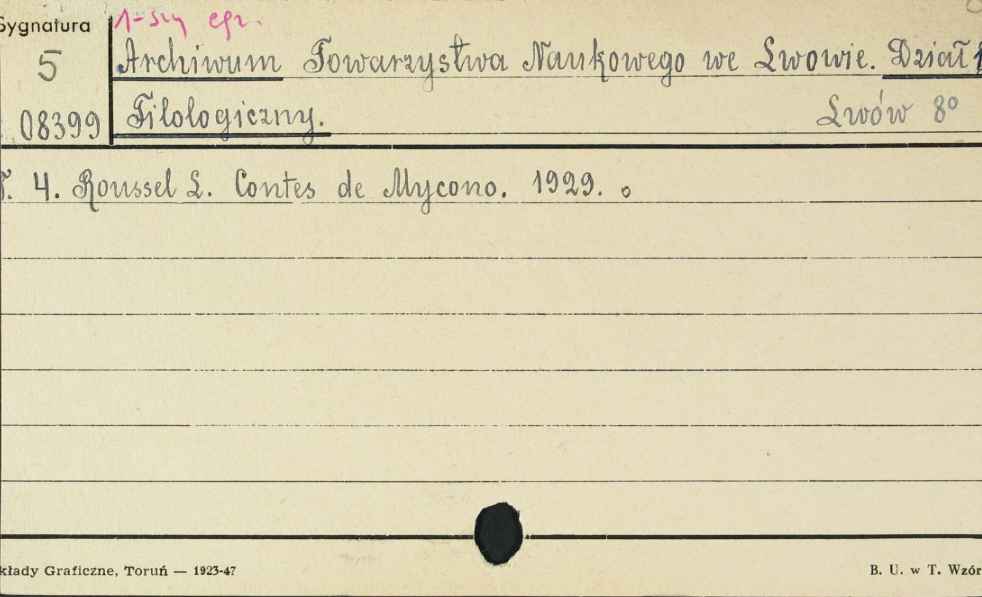 Sygnatura 1-szy egz.
5 Archiwum Towarzystwa Naukowego we Lwowie. Dział 1
08399 Filologiczny. Lwów 8°
T. 4. Roussel L. Contes de Mycono. 1929.
kłady Graficzne, Toruń — 1923-47 B. U. w T. Wzór